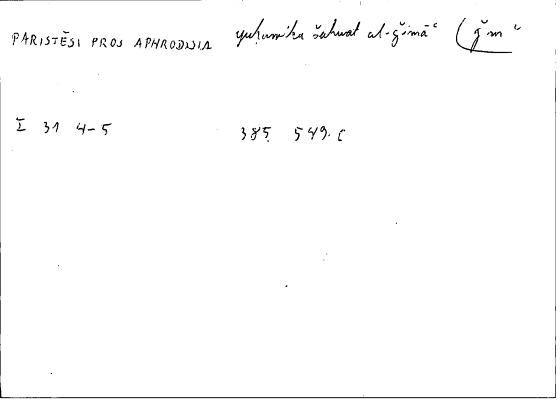 PARISTĒSI PROS APHRODISIA yuḥarrika šahwat al-ǧimāʿ (ǧmʿ
I 31 4-5 385, 549.